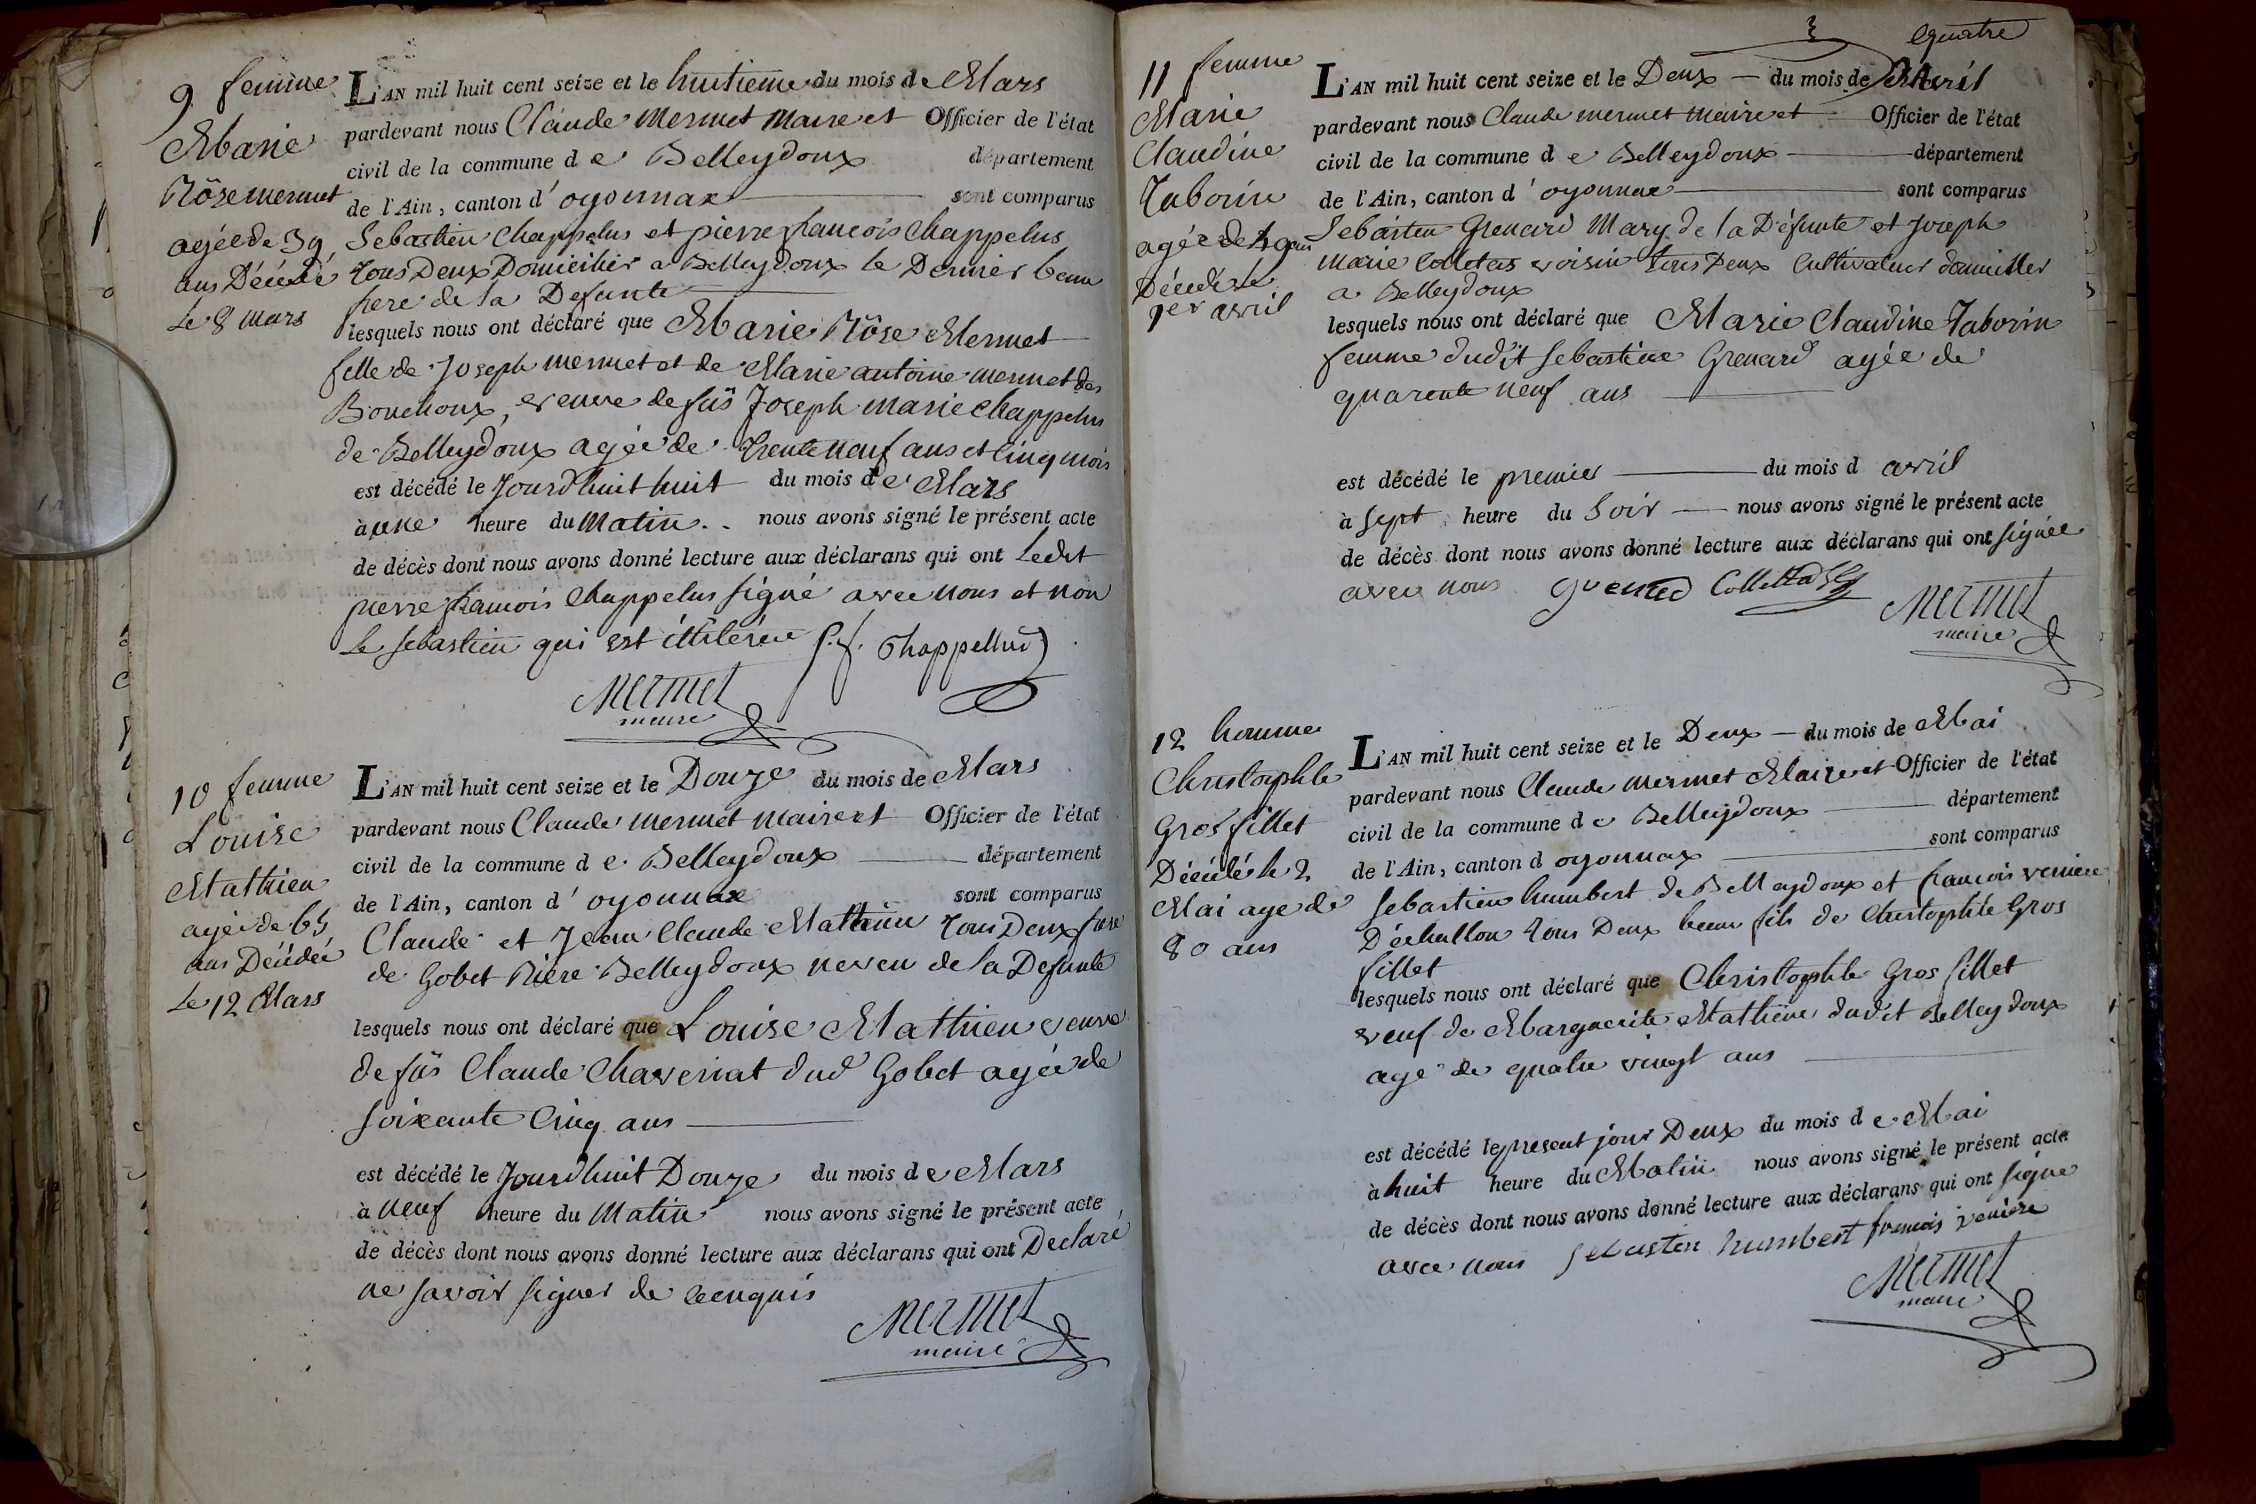 9 femme
Marie
Rôse mermet
agée de 39
ans Décédé
Le 8 mars
L'AN mil huit cent seize et le huitieme du mois de Mars
pardevant nous Claude Mermet Maire et Officier de l'état
civil de la commune de Belleydoux département
de l'Ain, canton d'oyonnax sont comparus
Sebastien Chappelus et pierre francois Chappelus
tous Deux Domicilier a Belleydoux le Dernier beau
frere de la Defunte
lesquels nous ont déclaré que Marie Rôse Mermet
fille de Joseph mermet et de Marie antoine mermet des
Bouchoux, veuve de fûs Joseph marie Chappelus
de Belleydoux agée de trente neuf ans et Cinq mois
est décédé le Jourdhuit huit du mois de Mars
à une heure du Matin.. nous avons signé le présent acte
de décès dont nous avons donné lecture aux déclarans qui ont Ledit
pierre francois Chappelus signé avec nous et non
le Sebastien qui est illitérée P. f. Chappellus
Mermet
maire
10 femme
Louise
Mathieu
agée de 65
ans Décédée
Le 12 Mars
L'AN mil huit cent seize et le Douze du mois de Mars
pardevant nous Claude mermet maire et Officier de l'état
civil de la commune de Belleydoux département
de l'Ain, canton d'oyonnax sont comparus
Claude et Jean Claude Mathieu tous Deux frere
de Gobet Riere Belleydoux neveu de la Defunte
lesquels nous ont déclaré que Louise Mathieu veuve
de fûs Claude Chaveriat dud Gobet agée de
Soixante Cinq ans
est décédé le Jourdhuit Douze du mois de Mars
à neuf heure du Matin nous avons signé le présent acte
de décès dont nous avons donné lecture aux déclarans qui ont Declaré
ne savoir signer de Ceenquis
Mermet
maire
3 quatre
11 femme
Marie
Claudine
Taborin
agée de 49 ans
Décédé le
1er avril
L'AN mil huit cent seize et le Deux du mois de Avril
pardevant nous Claude mermet maire et Officier de l'état
civil de la commune de Belleydoux département
de l'Ain, canton d'oyonnax sont comparus
Sebastien Grenard Mary de la Défunte et Joseph
marie Colletas voisin tous Deux Cultivateur domicilier
a Belleydoux
lesquels nous ont déclaré que Marie Claudine Taborin
femme dudit Sebastien Grenard agée de
quarante neuf ans
est décédé le premier du mois d avril
à Sept heure du Soir nous avons signé le présent acte
de décès dont nous avons donné lecture aux déclarans qui ont signée
avec nous Grenard
Mermet
maire
12 homme
Christophle
Gros fillet
Décédé le 2
Mai age de
80 ans
L'AN mil huit cent seize et le Deux du mois de Mai
pardevant nous Claude mermet Maire et Officier de l'état
civil de la commune de Belleydoux département
de l'Ain, canton d oyonnax sont comparus
Sebastien humbert de Belleydoux et francois veniere
D'échallon tous Deux beau fils de Christophle Gros
fillet
lesquels nous ont déclaré que Christophle Gros fillet
veuf de Marguerite Mathieu dudit Belleydoux
age de quatre vingt ans
est décédé le present jour Deux du mois de Mai
à huit heure du Matin nous avons signé le présent acte
de décès dont nous avons donné lecture aux déclarans qui ont signe
avec nous Sebastien humbert francois veniere
Mermet
maire